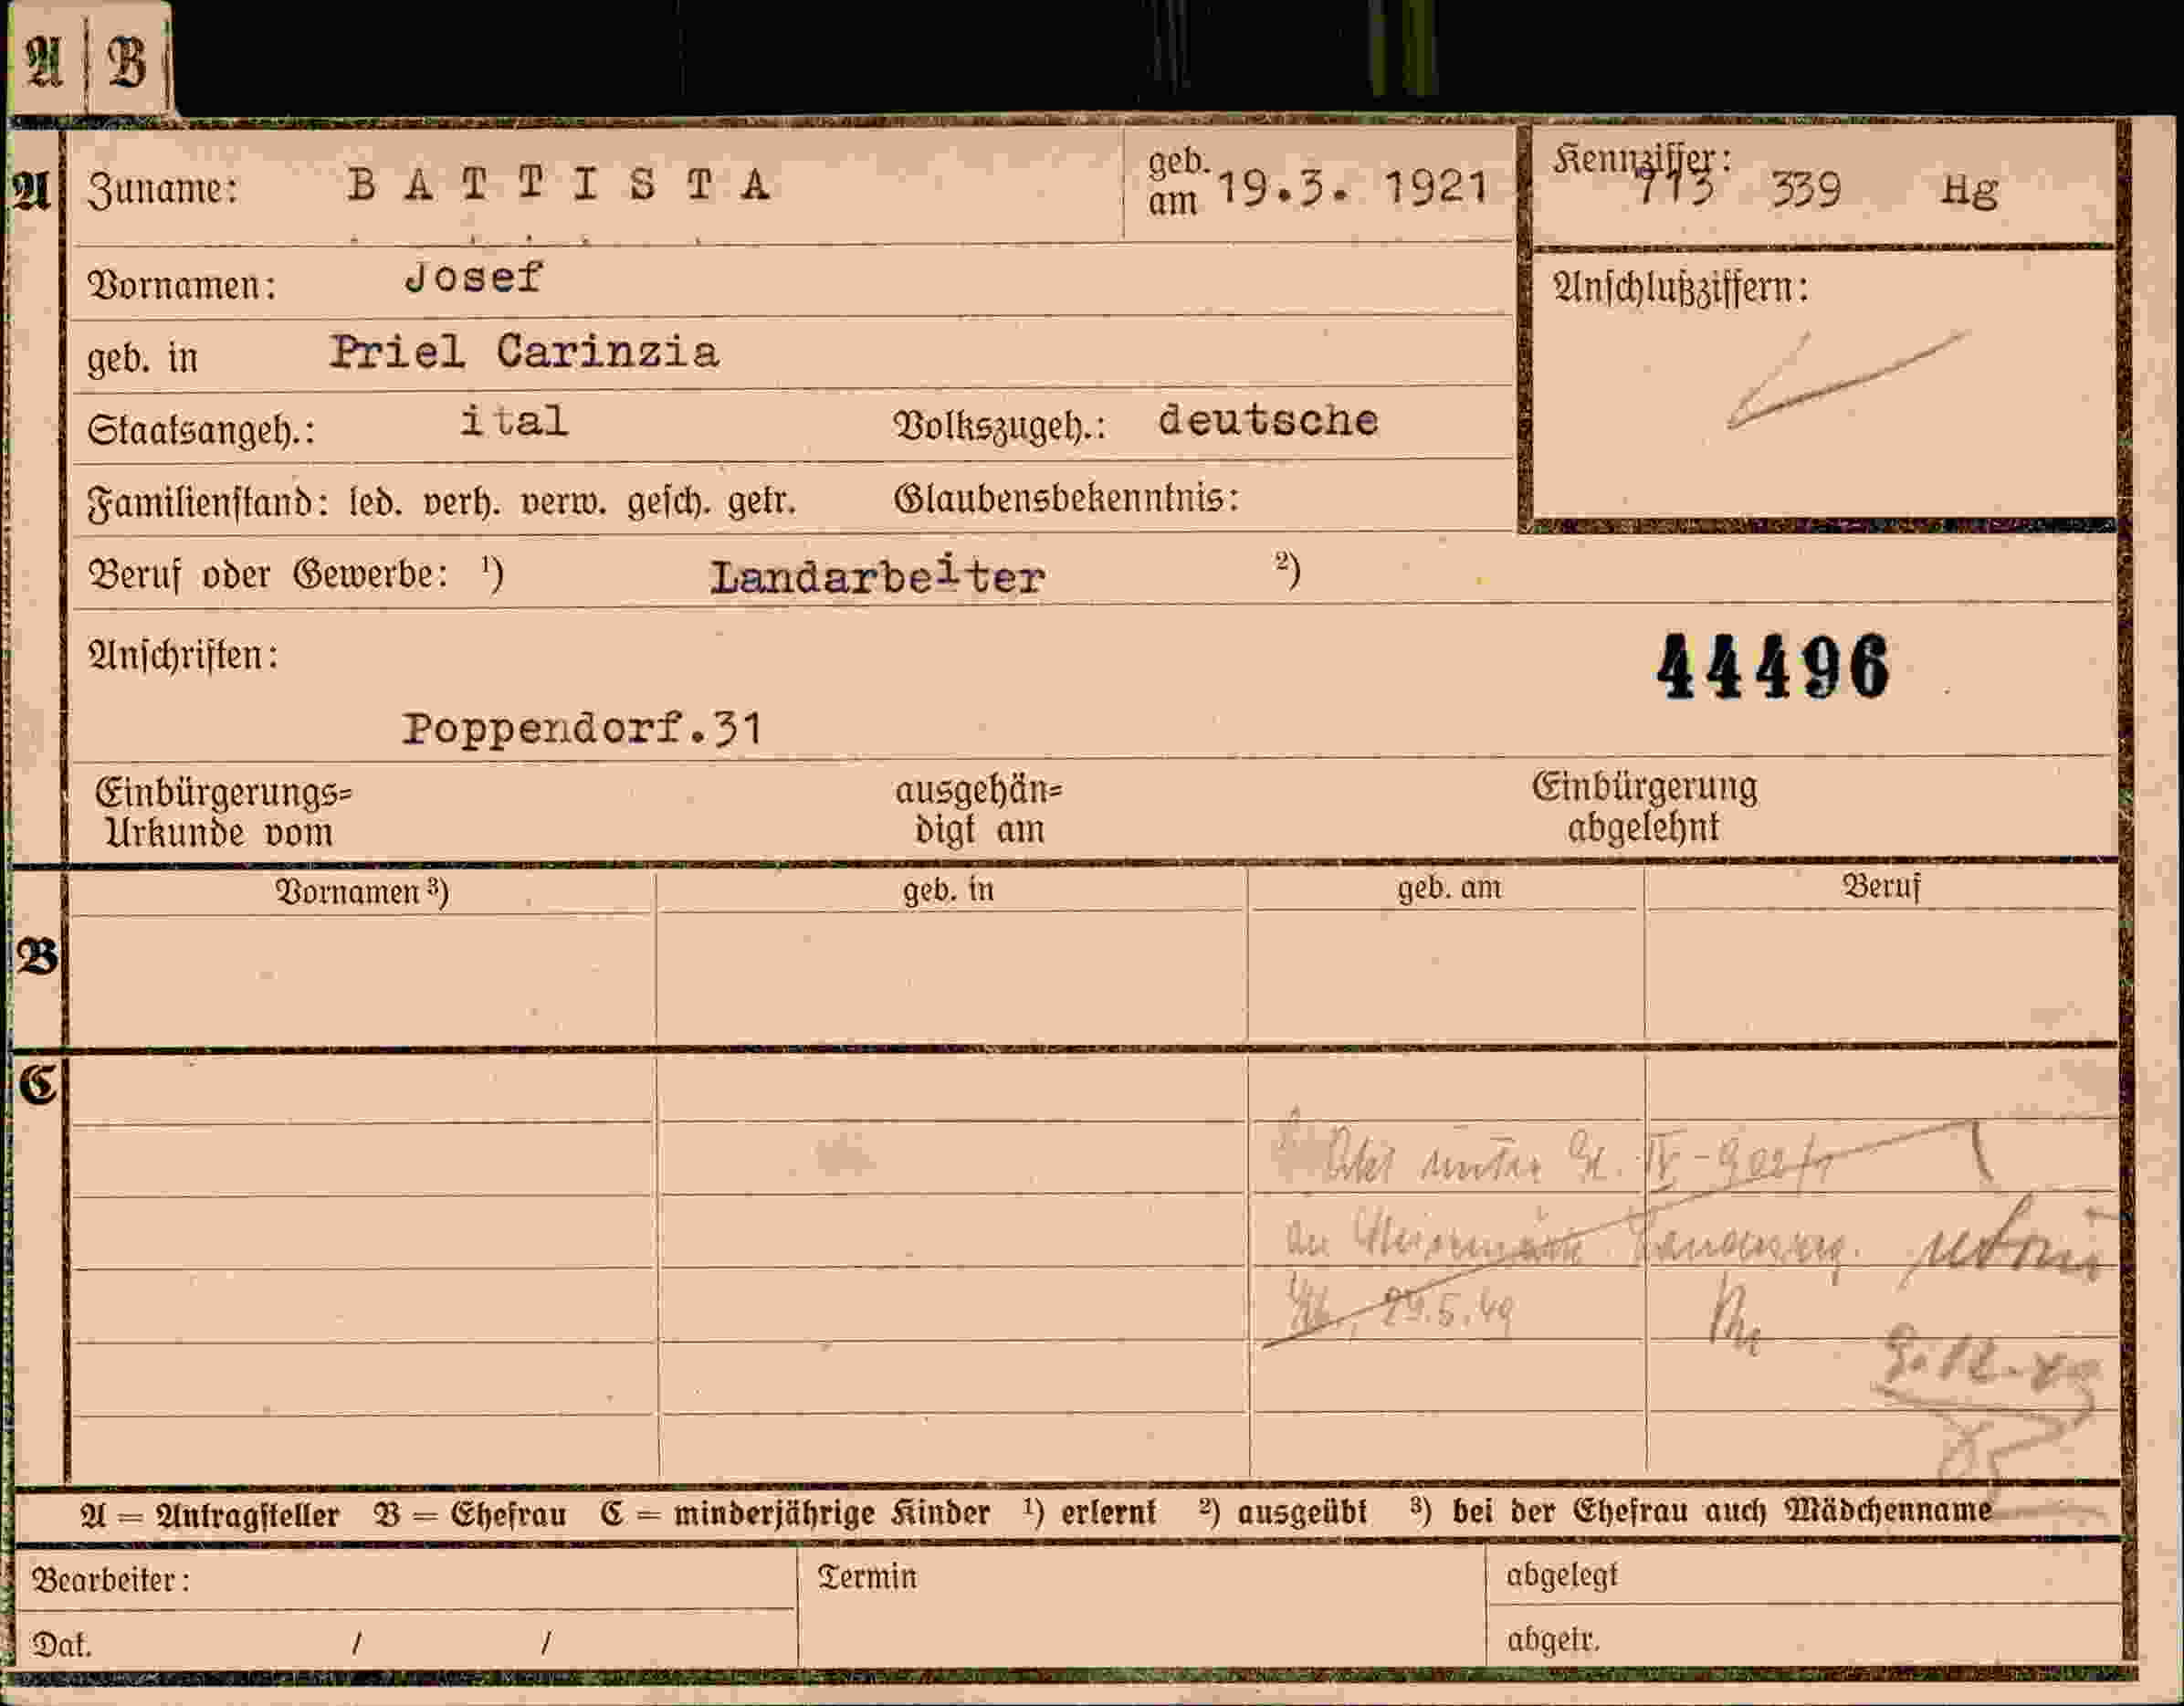 A B
A Zuname: BATTISTA geb. am 19.3. 1921 Kennziffer: 713 339 Hg
Vornamen: Josef Anschlußziffern:
geb. in Priel Carinzia
Staatsangeh.: ital Volkszugeh.: deutsche
Familienstand: led. verh. verw. gesch. getr. Glaubensbekenntnis:
Beruf oder Gewerbe: ¹) Landarbeiter ²)
Anschriften: 44496
Poppendorf.31
Einbürgerungs= ausgehän= Einbürgerung
Urkunde vom digt am abgelehnt
Vornamen ³) geb. in geb. am Beruf
B
C
unter IV-902/1
an
5.49
A = Antragsteller B = Ehefrau C = minderjährige Kinder ¹) erlernt ²) ausgeübt ³) bei der Ehefrau auch Mädchenname
Bearbeiter: Termin abgelegt
Dat. / / abgetr.